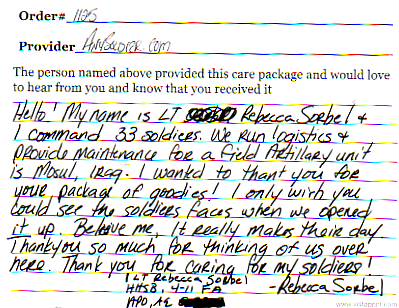 Order# 1125
Provider AnySoldier.com
The person named above provided this care package and would love
to hear from you and know that you received it
Hello! My name is LT Rebecca Sorbel &
I command 33 soldiers. We run logistics &
provide maintenance for a Field Artillary unit
is Mosul, Iraq. I wanted to thank you for
your package of goodies! I only wish you
could see the soldiers faces when we opened
it up. Believe me, It really makes their day
Thankyou so much for thinking of us over
here. Thank you for caring for my soldiers!
1 LT Rebecca Sorbel
-Rebecca Sorbel
HHSB, 4-11 FA
APO, AE